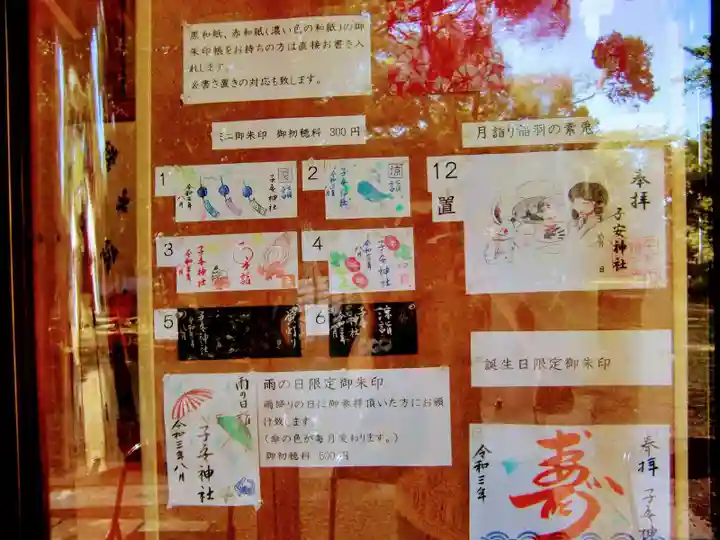 黒和紙、赤和紙(濃い色の和紙)の御
朱印帳をお持ちの方は直接お書き入
れします。
※書き置きの対応も致します。
ミニ御朱印 御初穂料 300円
1
令和三年八月
子安神社
2
子安神社
3
子安神社
4
令和三年八月
子安神社
5
子安神社
6
涼詣
月詣り 稲羽の素兎
12
置
奉拝
子安神社
雨の日
子安神社
令和三年八月
雨の日限定御朱印
雨降りの日に御参拝頂いた方にお頒
け致します
(傘の色が毎月変わります。)
御初穂料 500円
誕生日限定御朱印
奉拝
子安神
寿
令和三年